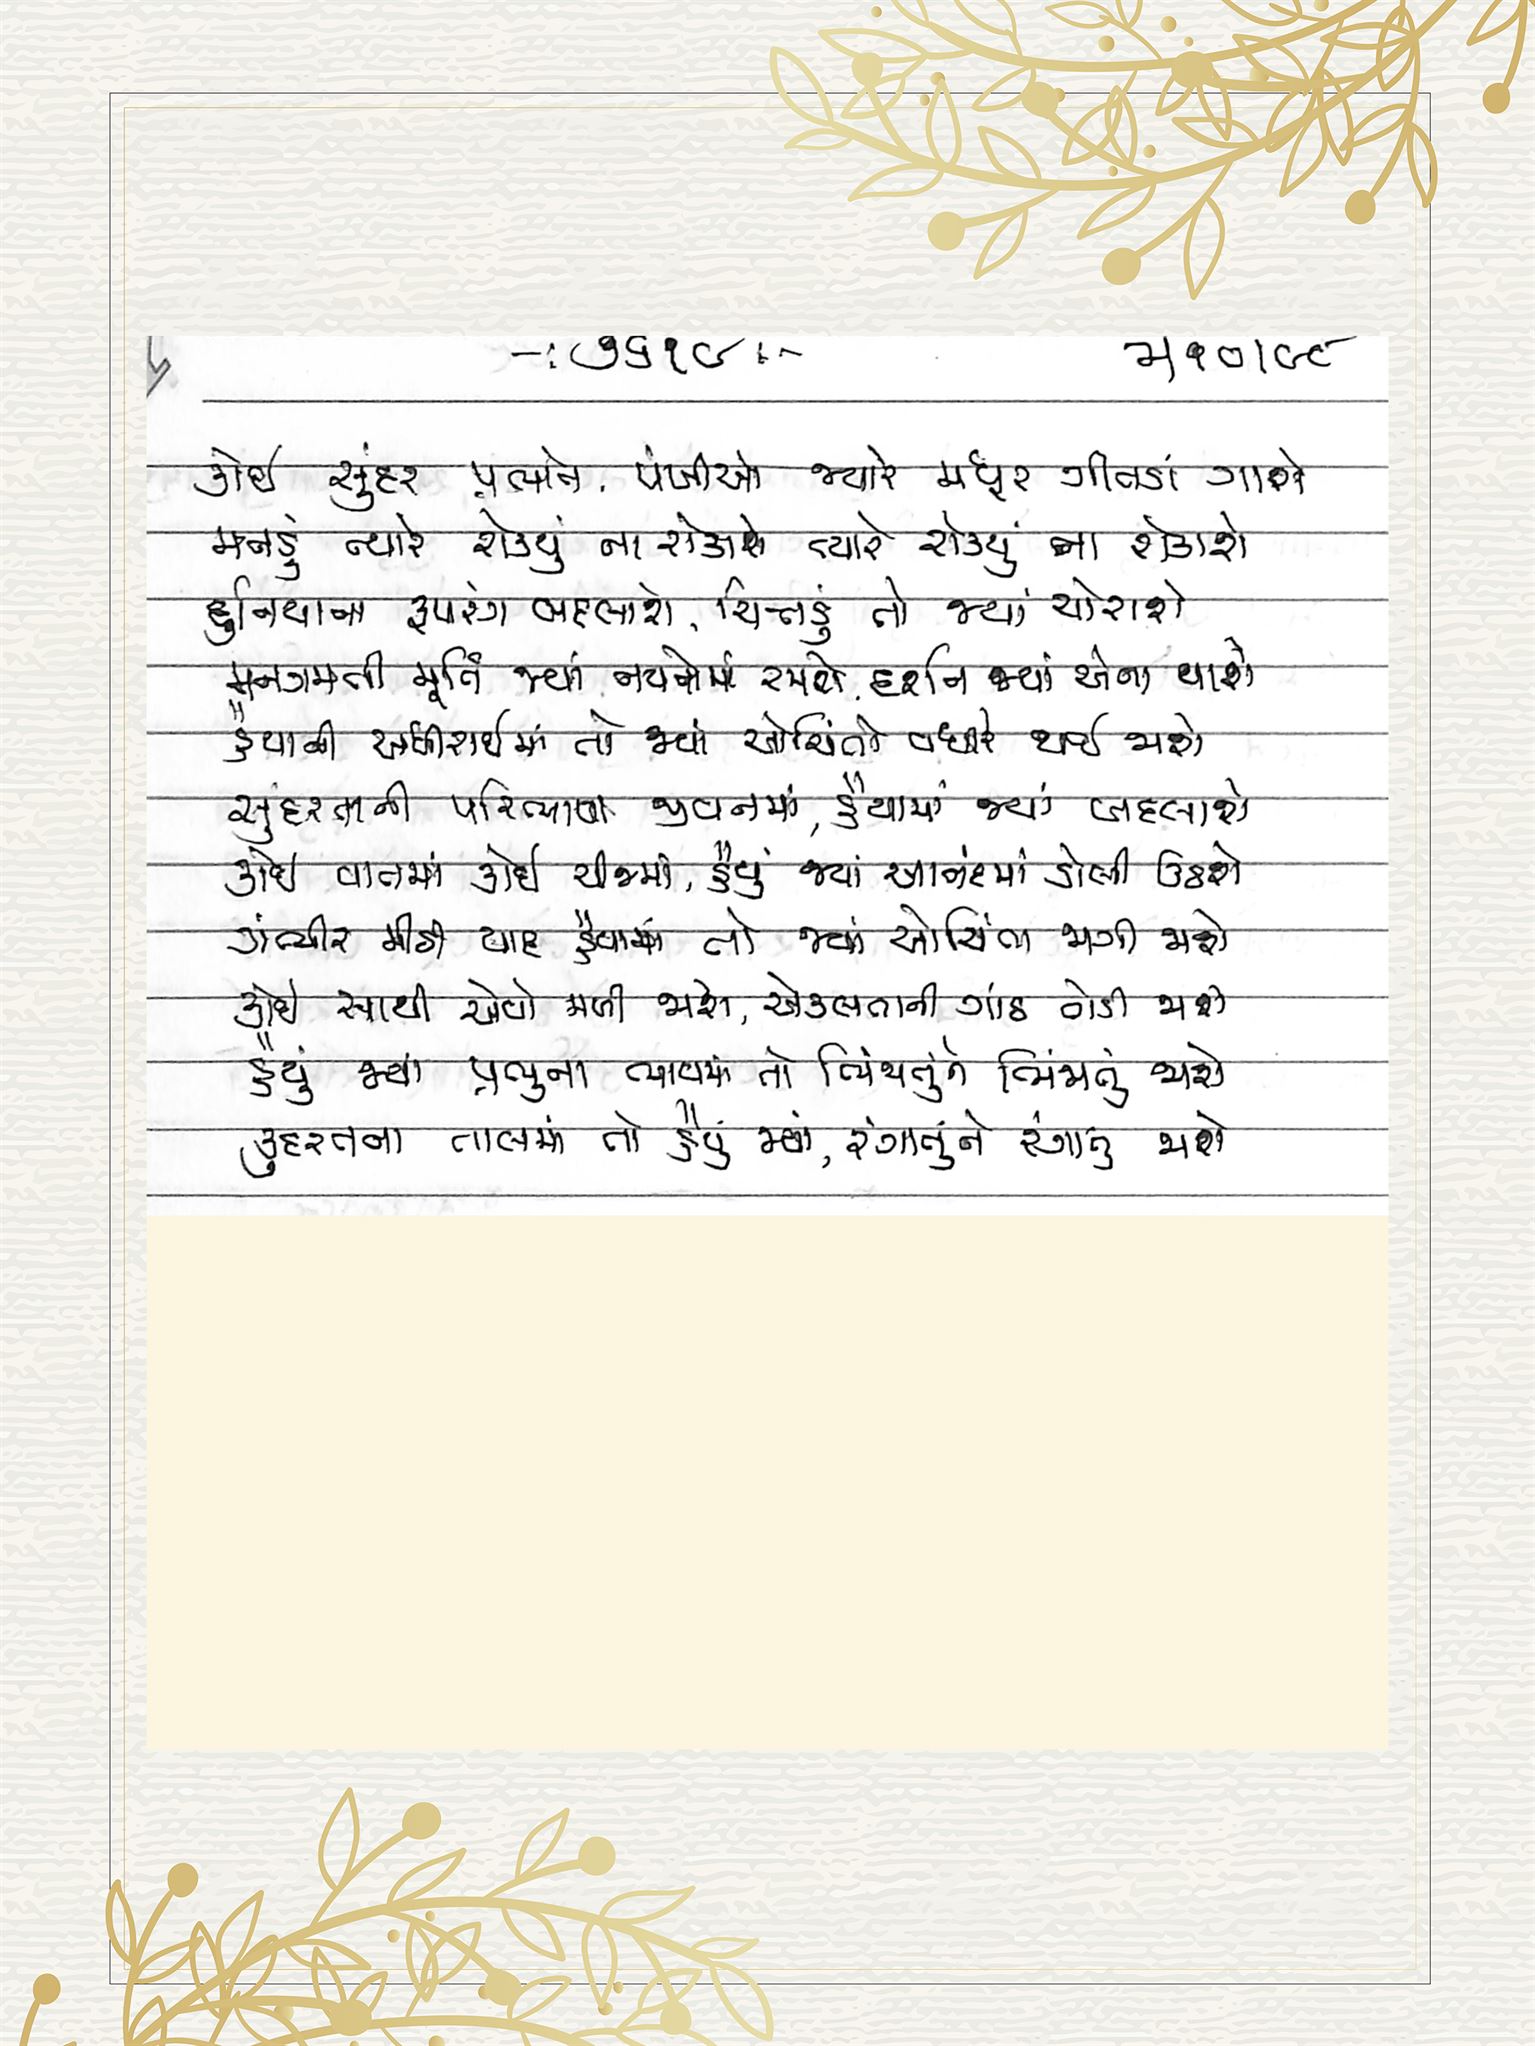 -: ૭૬૧૯ :-
કોઈ સુંદર પ્રભાતે, પંખીઓ જ્યારે મધુર ગીતડાં ગાશે
મનડું ત્યારે રોક્યું ના રોકાશે ત્યારે રોક્યું ના રોકાશે
દુનિયાના રૂપરંગ બદલાશે, ચિત્તડું તો જ્યાં ચોરાશે
મનગમતી મૂર્તિ જ્યાં નયનોમાં રમશે, દર્શન જ્યાં એના થાશે
હૈયાની તો જ્યાં ઓચિંતો વધારો થઈ જાશે
સુંદરતાની પરિભાષા જીવનમાં, હૈયામાં જ્યાં બદલાશે
કોઈ વાતમાં કોઈ ચીજમાં, હૈયું જ્યાં આનંદમાં ડોલી ઉઠશે
ગંભીર મીઠી યાદ હૈયામાં તો જ્યાં ઓચિંતી જાગી જાશે
કોઈ સાથી એવો મળી જાશે, એકલતાની ગાંઠ તોડી જાશે
હૈયું જ્યાં પ્રભુના ભાવમાં તો ભિંજાતું ને ભિંજાતું જાશે
કુદરતના તાલમાં તો હૈયું જ્યાં, રંગાતું ને રંગાતું જાશે